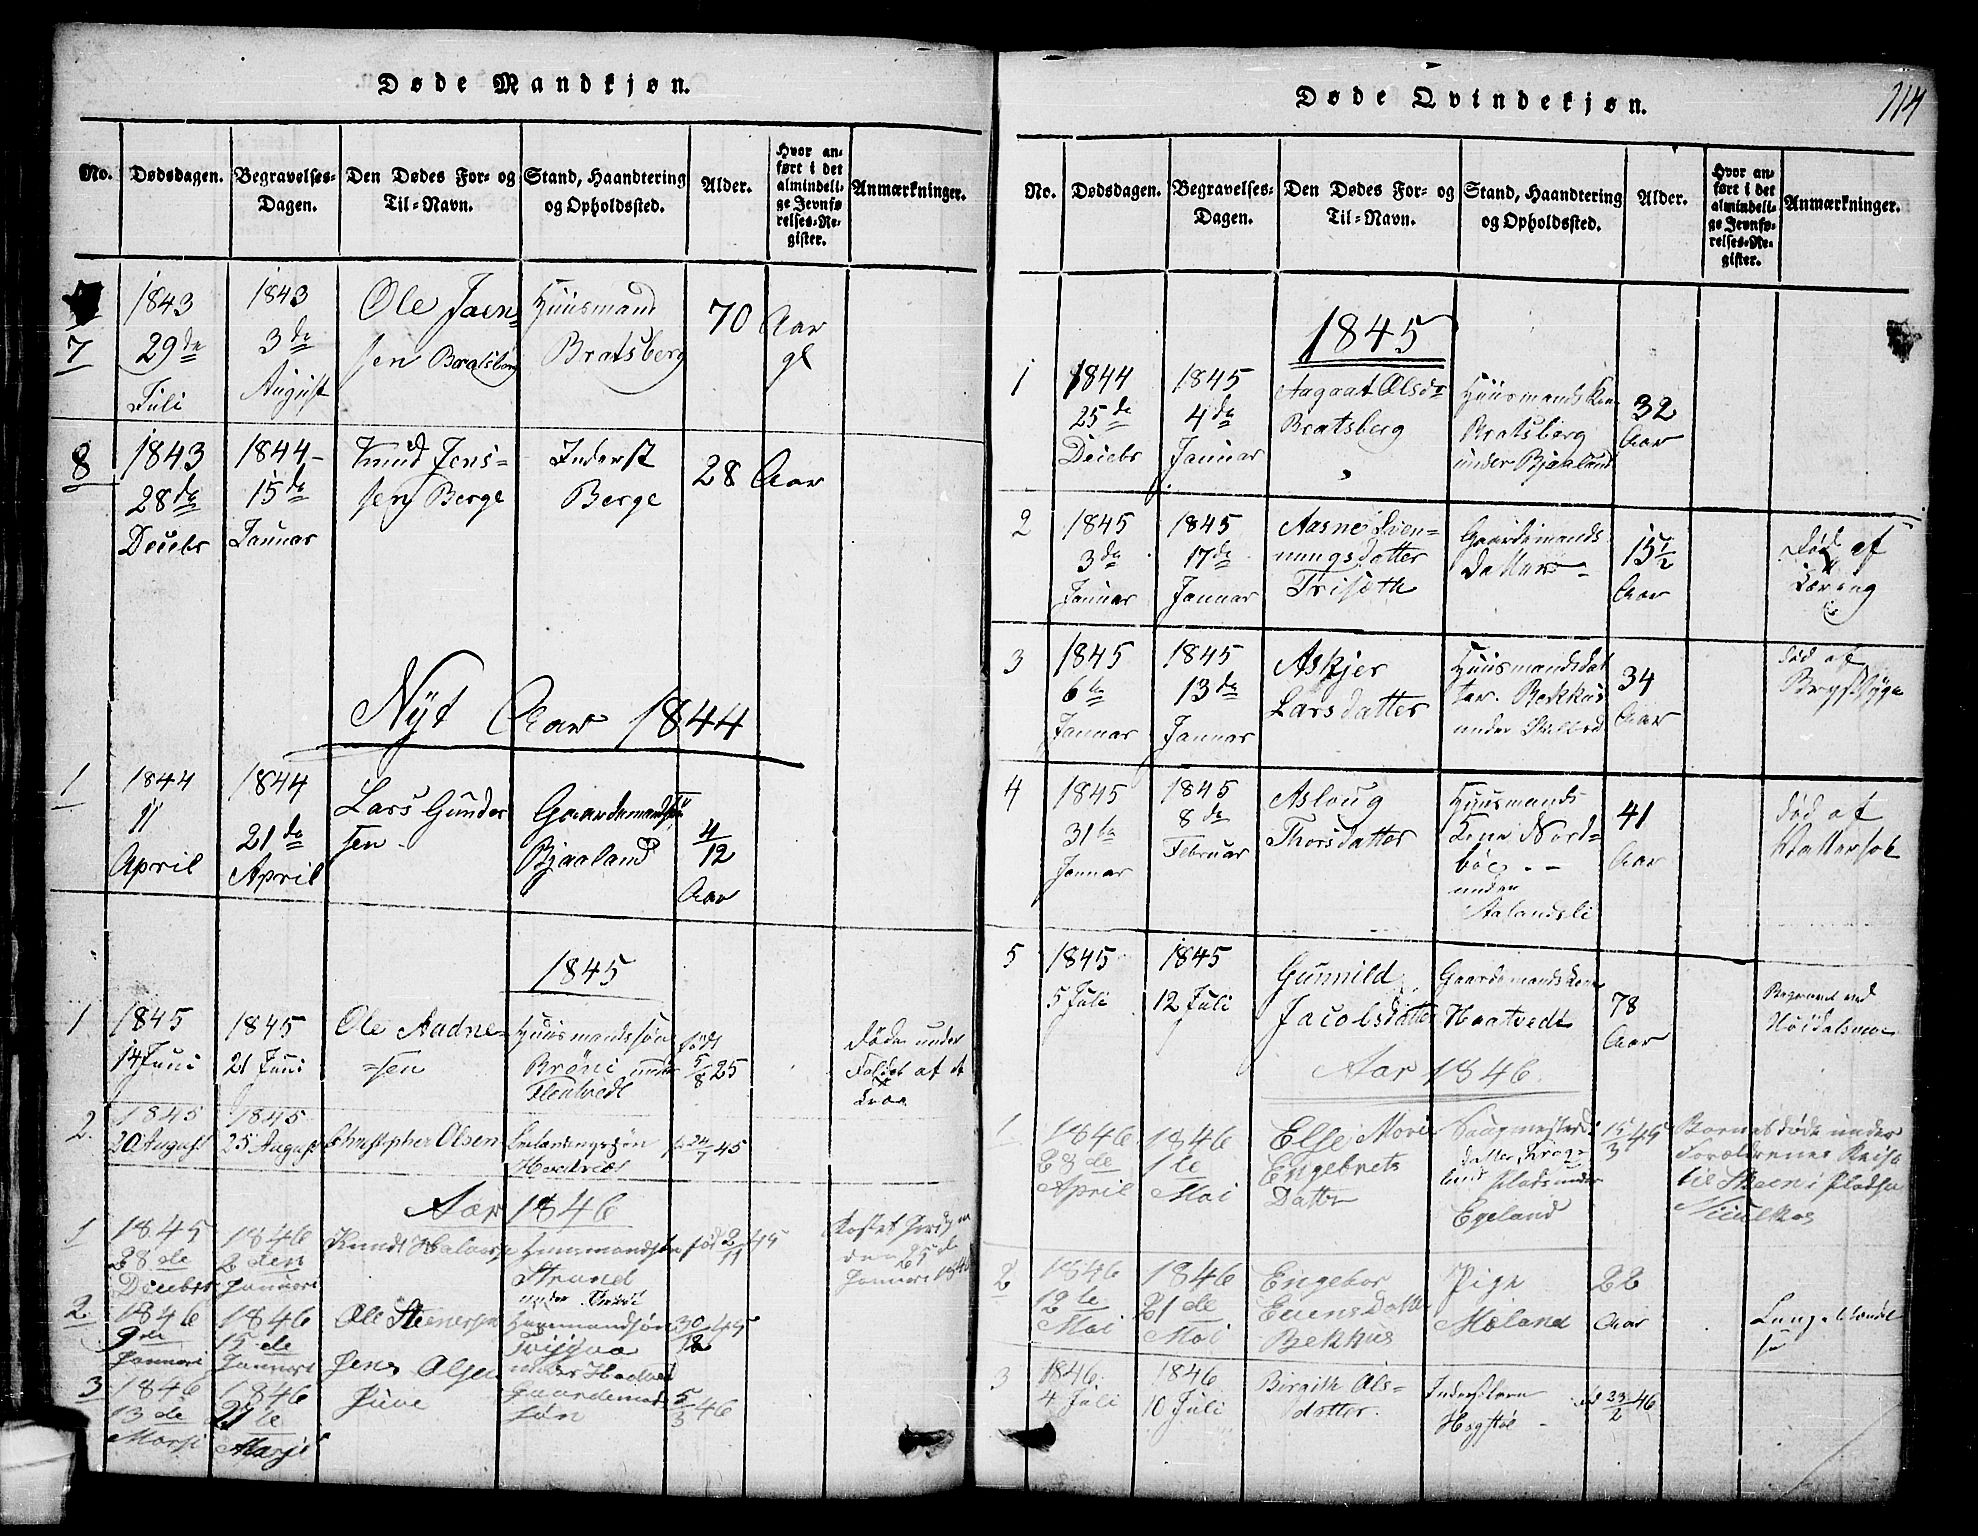 Døde Mandkjøn.
No. Dødsdagen. Begravelses-Dagen. Den Dødes For- og Til-Navn. Stand, Haandtering og Opholdssted. Alder. Hvor anført i det almindelige Jevnførelses-Register. Anmærkninger.
7
1843
29de
Juli
1843
3de
August
Ole Jaen-
sen Bratsberg
Huusmand
Bratsberg
70 Aar
gl
8
1843
28de
Decebr
1844
15de
Januar
Knud Jens-
sen Berge
Inderst
Berge
28 Aar
Nyt Aar 1844
1
1844
11
April
1844
21de
April
Lars Gunder
sen
Gaardemands
Bjaaland
4/12
Aar
1845
1
1845
14 Juni
1845
21 Juni
Ole Aadne-
sen
Huusmandssøn
Brøni under
Flatvedt
født
5/8 25
Døde under
af
2.
1845
20 August
1845
25 August
Christopher Olsen
24/7 45
Aar 1846
1
1845
28de
Decebr
1846
2den
Januari
Knudt Halvors
Huusmandsøn
Strand
under
fød 2/11 45
den 25de
Januari 1846
2
1846
9de
Januari
1846
15de
Januari
Ole Steenersen
Huusmandsøn
under
30/12 45
3
1846
13de
Marsi
1846
21de
Marsi
Jens Olsen
Juve
Gaardemand
søn
5/3 46
114
Døde Qvindekjøn.
No. Dødsdagen. Begravelses-Dagen. Den Dødes For- og Til-Navn. Stand, Haandtering og Opholdssted. Alder. Hvor anført i det almindelige Jevnførelses-Register. Anmærkninger.
1845
1
1844
25de
Decebr
1845
4de
Januar
Aagaat Olsdr
Bratsberg
Huusmands Kone
Bratsberg
under Bjaaland
32
Aar
2
1845
3de
Januar
1845
17de
Januar
Aasne Sven-
nungsdatter
Trisæth
Gaardemands
Datter
15 1/2
Aar
Død af
Tæring
3
1845
6te
Januar
1845
13de
Januar
Askjer
Larsdatter
Huusmandsdat
ter. Bekkhus
under
34
Aar
død af
Brystsyge
4
1845
31te
Januar
1845
8de
Februar
Asloug
Thorsdatter
Huusmands
Kone Nord-
bøe
under
Aalandslie
41
Aar
død af
Vattersot
5
1845
5 Juli
1845
12 Juli
Gunnild
Jacobsdatter
Gaardemands Kone
Haatvedt
78
Aar
Begravet ved
Høidalsmoe
Aar 1846
1
1846
28de
April
1846
1te
Mai
Else Marie
Engebrets
Datter
Datter
Plads under
Egeland
15/3 45
Barnet døde under
Forældrenes Reise
til
2
1846
12te
Mai
1846
21de
Mai
Engebor
Evensdatter
Bekkhus
Pige
Moland
22
Aar
3
1846
4 Juli
1846
10 Juli
Birgith Ols-
datter.
Hegstøl
23/2 46